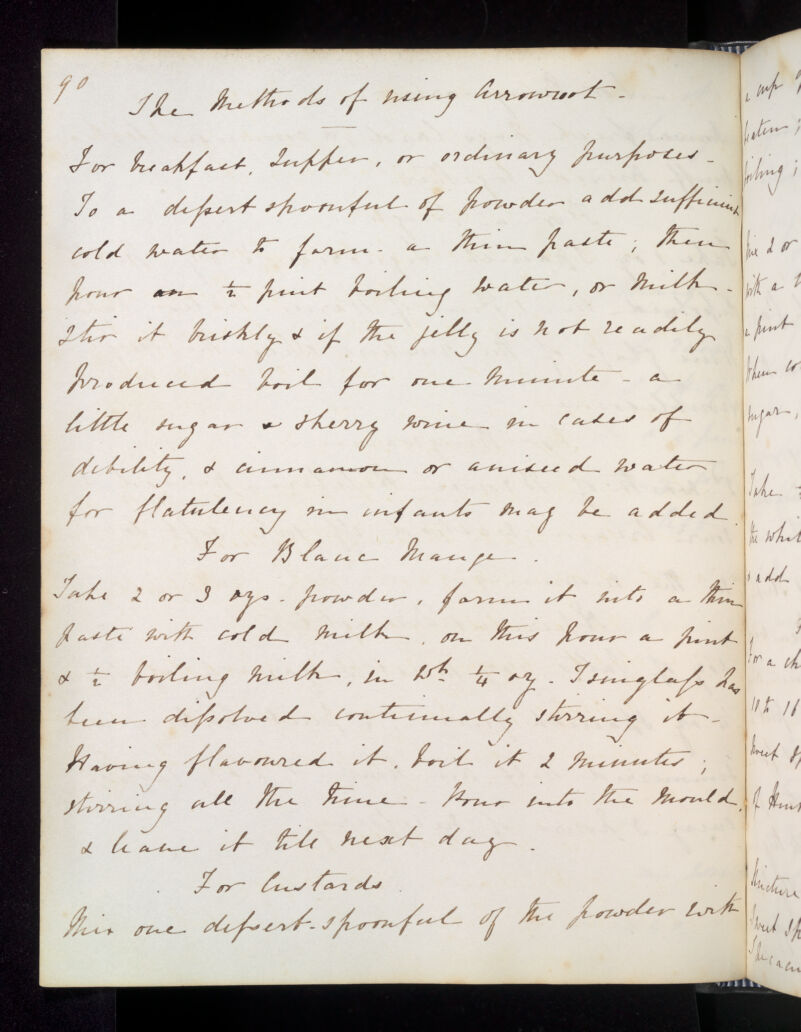 90
The Methods of using Arrowroot -
For breakfast, Supper, or ordinary purposes -
To a dessert spoonful of powder add sufficient
cold water to form a thin paste; then
pour on ½ pint boiling water, or Milk -
Stir it briskly & if the jelly is not readily
produced boil for one Minute - a
little sugar & sherry wine in cases of
debility, & cinnamon or aniseed water
for flatulency in infants may be added
For Blanc Mange.
Take 2 or 3 ozs. powder, form it into a thin
paste with cold Milk, on this pour a pint
& ½ boiling Milk, in wh. ¼ oz. Isinglass has
been dissolved continually stirring it -
Having flavoured it, boil it 2 Minutes;
stirring all the time - Pour into the Mould,
& leave it till next day.
For Custards.
Mix one dessert-spoonful of the powder with
a cup
beaten
boiling;
2 or
with a
a pint
when
sugar,
Take
the whit
& add
For a ch
10 to 16
tincture